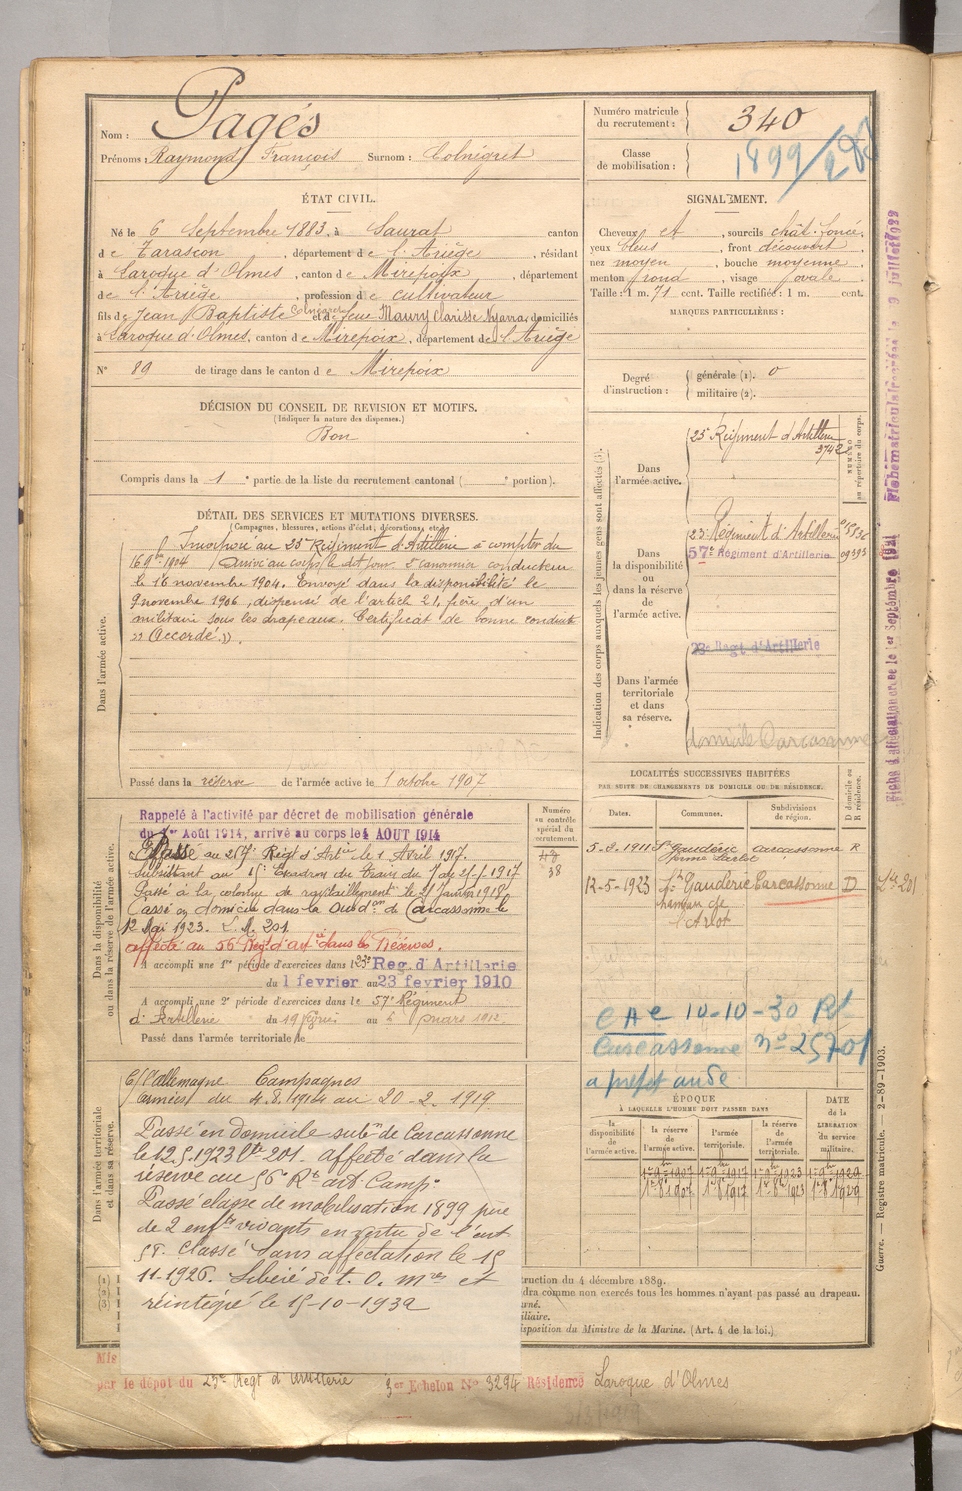 Nom : Pagés
Prénoms : Raymond François Surnom : Colnégret
Numéro matricule du recrutement : 340
Classe de mobilisation : 1899/
ÉTAT CIVIL.
Né le 6 Septembre 1883, à Saurat canton
d e Tarascon, département d e l'Ariège, résidant
à Laroque d'Olmes, canton d e Mirepoix, département
d e l'Ariège, profession d e cultivateur
fils d e Jean Baptiste et d e feue Maury Clarisse domiciliés
à Laroque d'Olmes, canton d e Mirepoix, département de l'Ariège
N° 89 de tirage dans le canton d e Mirepoix
SIGNALEMENT.
Cheveux et, sourcils chât. foncé,
yeux bleus, front découvert,
nez moyen, bouche moyenne,
menton rond, visage ovale.
Taille : 1 m. 71 cent. Taille rectifiée : 1 m. cent.
MARQUES PARTICULIÈRES :
Degré d'instruction : générale (1). 0
militaire (2).
DÉCISION DU CONSEIL DE REVISION ET MOTIFS.
(Indiquer la nature des dispenses.)
Bon
Compris dans la 1 e partie de la liste du recrutement cantonal ( e portion).
DÉTAIL DES SERVICES ET MUTATIONS DIVERSES.
(Campagnes, blessures, actions d'éclat, décorations, etc.)
Dans l'armée active.
Incorporé au 23e Régiment d'Artillerie à compter du
16 9bre 1904. Arrivé au corps le dit jour. 2e canonnier conducteur
le 16 novembre 1904. Envoyé dans la disponibilité le
9 novembre 1906, dispensé de l'article 21, frère d'un
militaire sous les drapeaux. Certificat de bonne conduite
"Accordé".
Passé dans la réserve de l'armée active le 1 octobre 1907
Indication des corps auxquels les jeunes gens sont affectés (3).
Dans l'armée active.
23e Régiment d'Artillerie
3742
NUMÉRO au répertoire du corps.
Dans la disponibilité ou dans la réserve de l'armée active.
23e Régiment d'Artillerie
57e Régiment d'Artillerie
23e Regt d'Artillerie
Dans l'armée territoriale et dans sa réserve.
domicile Carcassonne
LOCALITÉS SUCCESSIVES HABITÉES
PAR SUITE DE CHANGEMENTS DE DOMICILE OU DE RÉSIDENCE.
Dates. Communes. Subdivisions de région. D domicile ou R résidence.
5-3-1911 St Gaudéric Carcassonne R
12-5-1923 St Gauderic Carcassonne D
Dans la disponibilité ou dans la réserve de l'armée active.
Numéro au contrôle spécial du recrutement.
38
Rappelé à l'activité par décret de mobilisation générale
du 1er Août 1914, arrivé au corps le 4 AOUT 1914
Passé au 267e Régt d'Artie le 1 Avril 1917.
Passé à la colonne de ravitaillement le 21 Janvier 1918
Classé en domicile dans la Subdon de Carcassonne le
12 Mai 1923. L. M. 201.
affecté au 56e Régt d'artie dans les Réserves.
A accompli une 1re période d'exercices dans le 23e Reg. d'Artillerie
du 1 fevrier au 23 fevrier 1910
A accompli une 2e période d'exercices dans le 57e Régiment
d'Artillerie du 19 février au 6 mars 1912.
Passé dans l'armée territoriale le
C A C 10-10-30
Carcassonne n° 25701
Dans l'armée territoriale et dans sa réserve.
C/l'allemagne Campagnes
armées du 4.8.1914 au 20-2-1919
Passé en domicile subon de Carcassonne
le 12.5.1923 Ltre 201. affecté dans la
réserve au 56 Rt art. Camp.
Passé classe de mobilisation 1899 père
de 2 enfts vivants en vertu de l'art
58. Classé sans affectation le 15
11-1926. Libéré de t. O. mres et
réintégré le 15-10-1932
ÉPOQUE
À LAQUELLE L'HOMME DOIT PASSER DANS
la disponibilité de l'armée active. la réserve de l'armée active. l'armée territoriale. la réserve de l'armée territoriale. DATE de la LIBÉRATION du service militaire.
1er 9bre 1907 1er 9bre 1917 1er 9bre 1923 1er 9bre 1929
1er 8bre 1907 1er 8bre 1917 1er 8bre 1923 1er 8bre 1929
(1)
(2)
(3)
truction du 4 décembre 1889.
dra comme non exercés tous les hommes n'ayant pas passé au drapeau.
rné.
iliaire.
isposition du Ministre de la Marine. (Art. 4 de la loi.)
Mis
par le dépôt du 23me Regt d'Artillerie 3er Echelon N° 3294 Résidence Laroque d'Olmes
Guerre. — Registre matricule. — 2-89-1903.